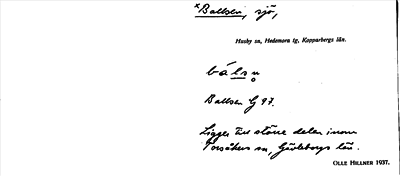 *Ballsen, sjö,
Husby sn, Hedemora tg, Kopparbergs län.
bálsn̥
Ballsen G 97.
Ligger till större delen inom
Torsåkers sn, Gävleborgs län.
OLLE HILLNER 1937.